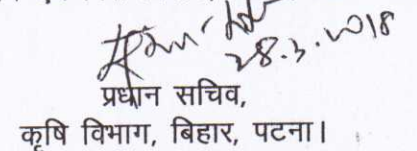 28.3.2018
प्रधान सचिव,
कृषि विभाग, बिहार, पटना।